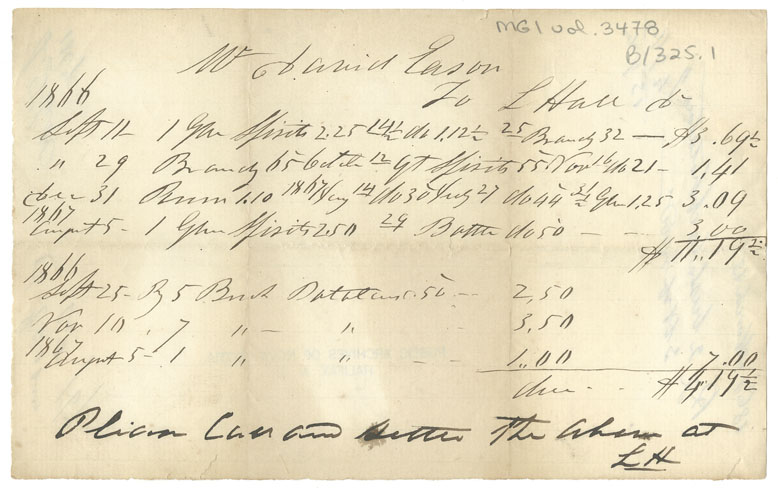 MG1 vol. 3478
B/325.1
Mr David Eason
1866 To L Hall Dr
Sept 12 1 Gln Spirits 2.25 14 ½ do 1.12½ 25 Brandy 32 — $3.69½
" 29 Brandy 65 Octbr 12 qt Spirits 55 Nov 16 do 21 - 1.41
Dec 31 Rum 1.10 1867 May 14 do 30 July 27 do 44 31 ½ Gln 1.25 3.09
1867
August 5 - 1 Gln Spirits 2.50 29 Bottle do 50 — — 3.00
$11.19½
1866
Sept 25 - By 5 Bush Potatoes .50 — 2.50
Nov 10 " 7 " — " 3.50
1867
August 5 - 1 " " - - 1.00 7.00
due - $4.19½
Please Call and settle the above at
LH